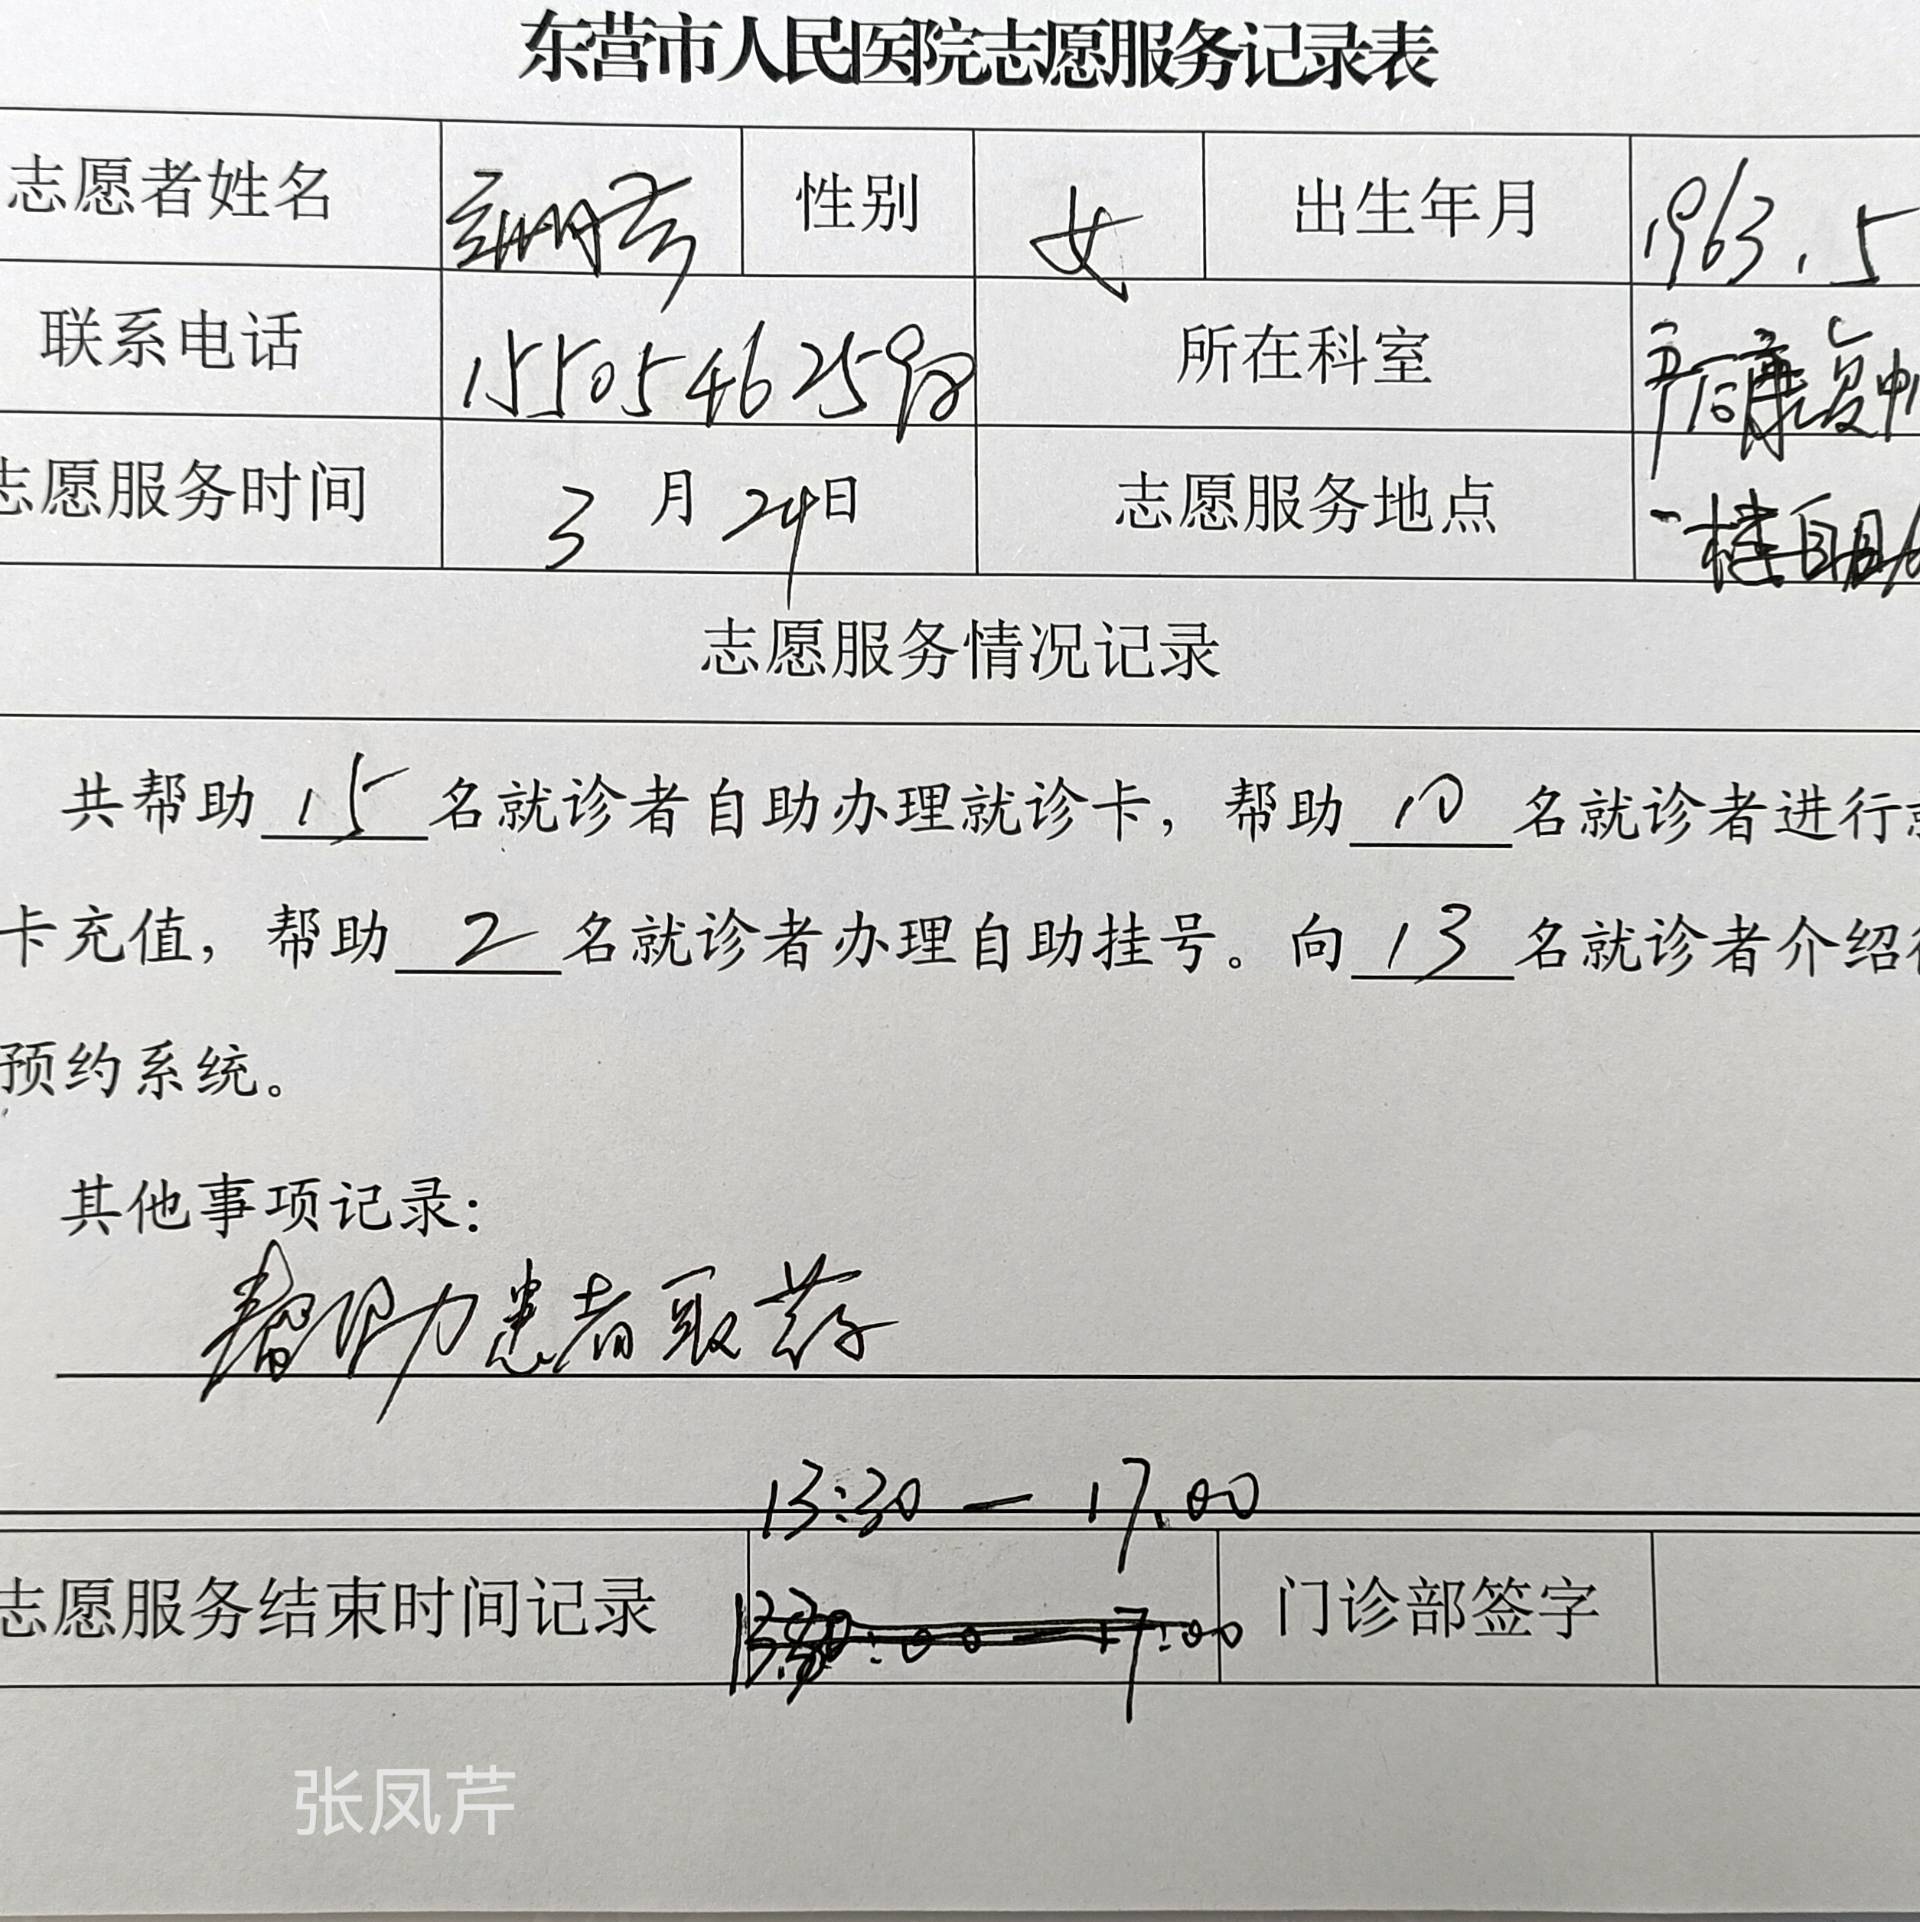 东营市人民医院志愿服务记录表
志愿者姓名 性别 女 出生年月 1963.5
联系电话 15505462598 所在科室 产后康复中
志愿服务时间 3月24日 志愿服务地点 一楼自助
志愿服务情况记录
共帮助15名就诊者自助办理就诊卡，帮助10名就诊者进行就
卡充值，帮助2名就诊者办理自助挂号。向13名就诊者介绍
预约系统。
其他事项记录：
帮助患者取药
13:30—17.00
志愿服务结束时间记录 17:00 门诊部签字
张凤芹